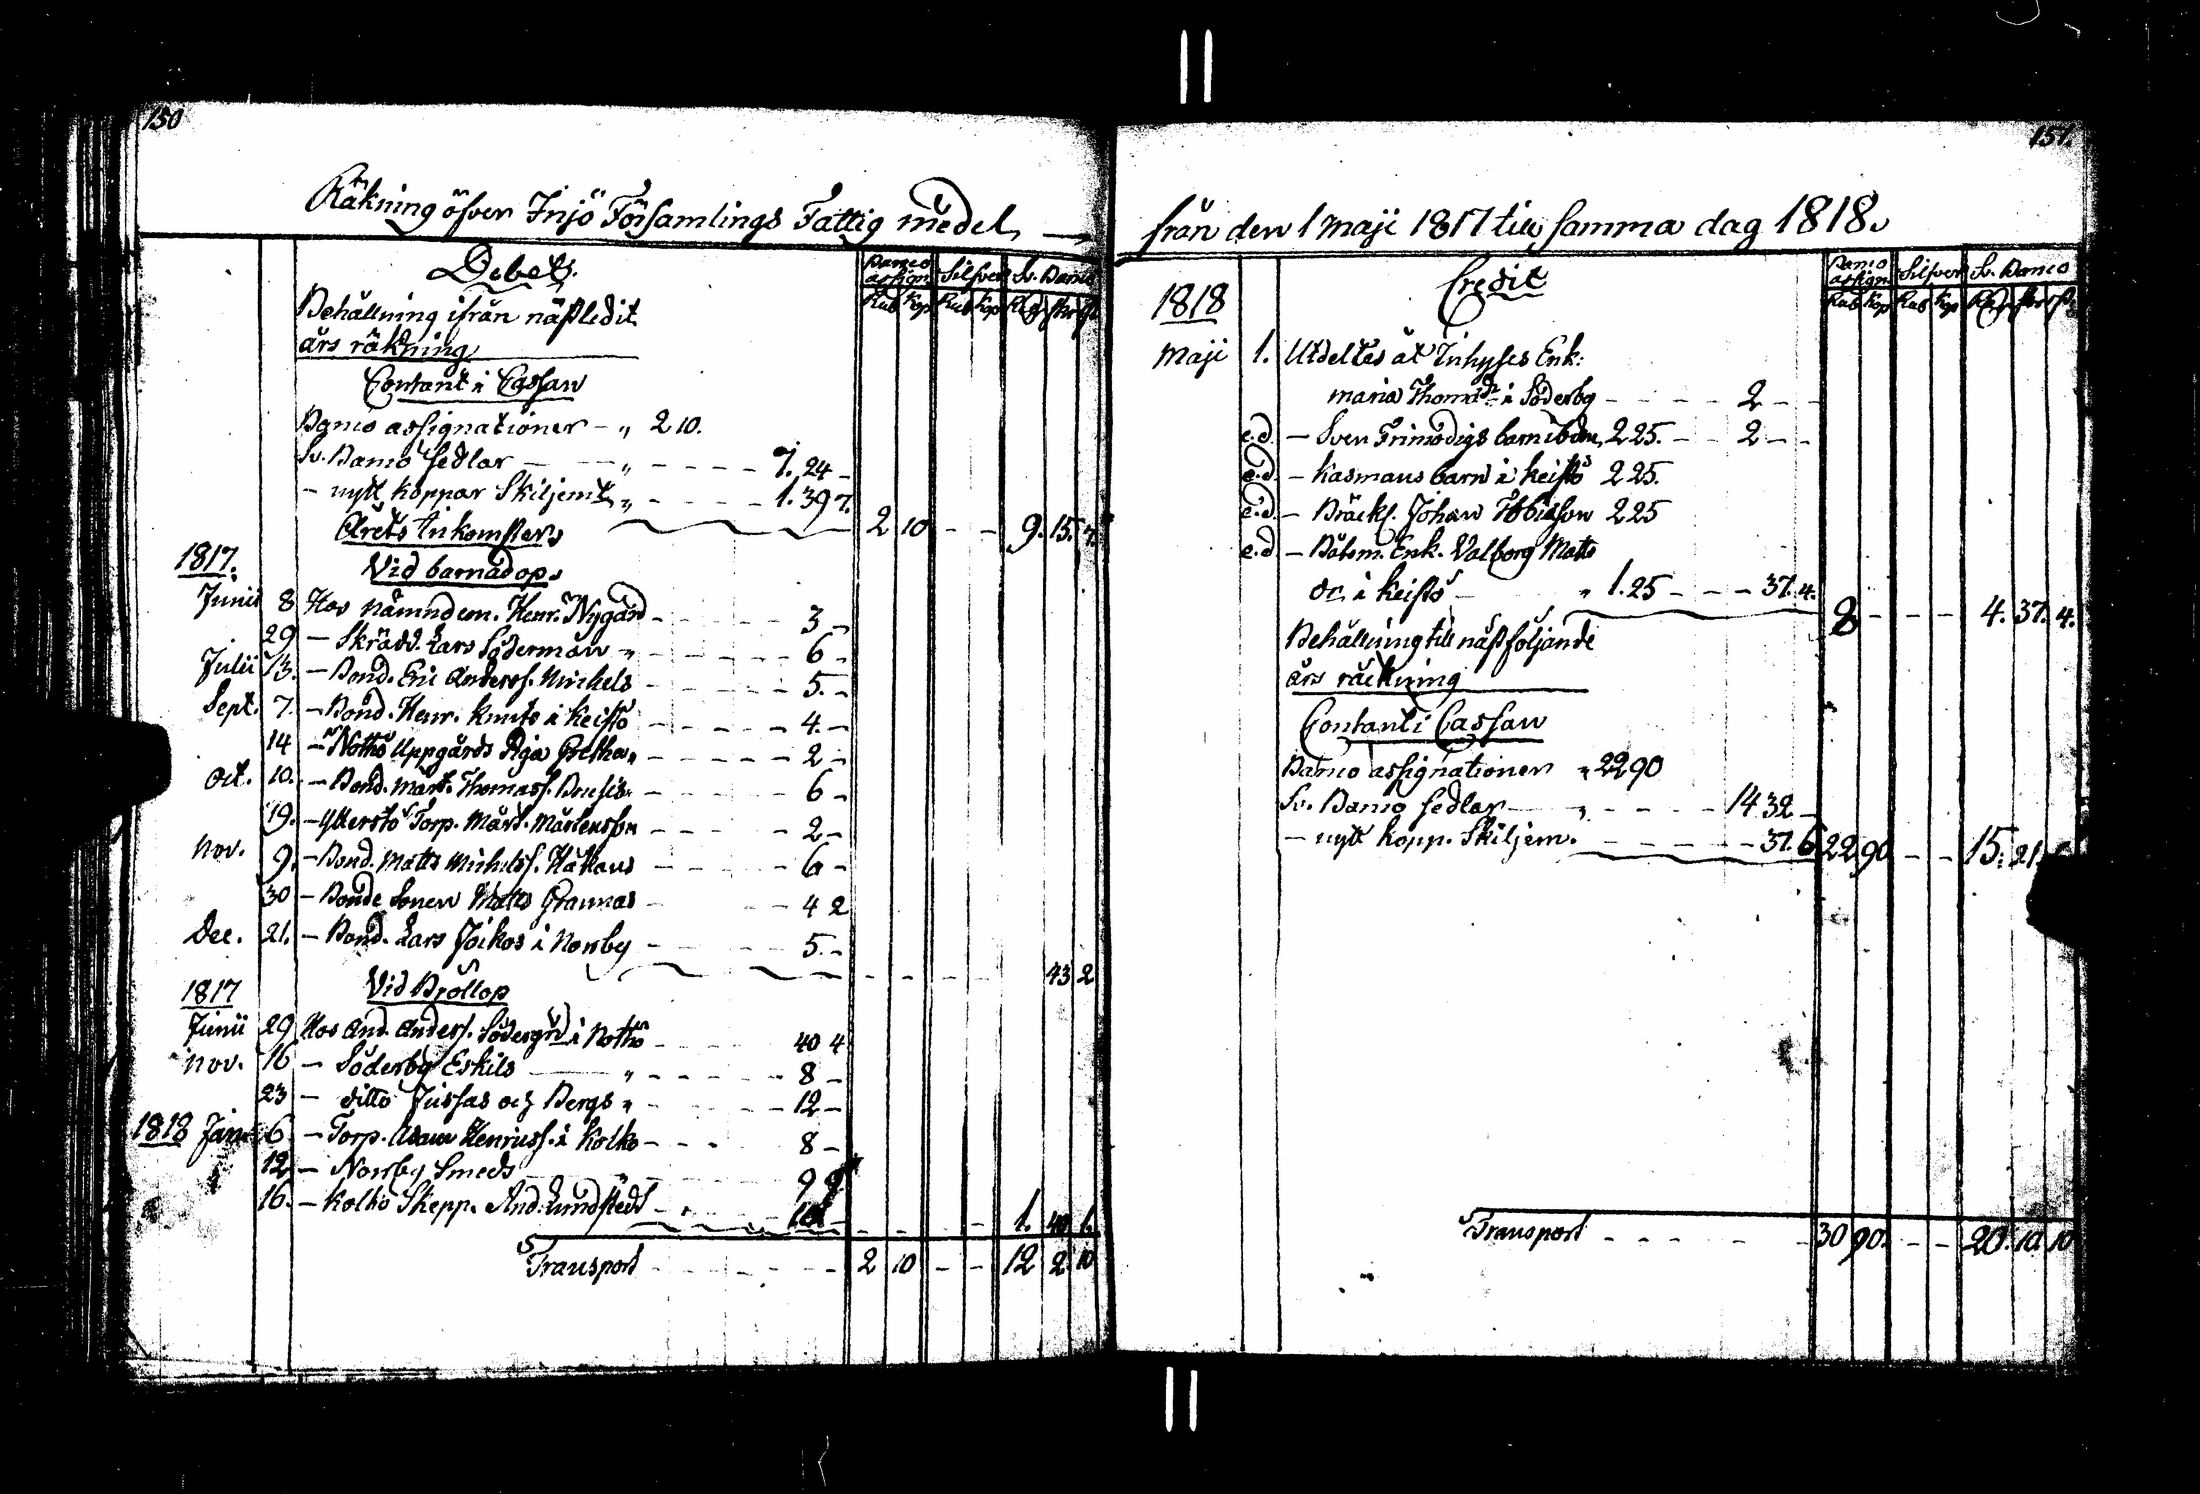 150
Räkning öfver Injö Församlings Fattig medel
Debet.
Banco assign Silfver Sv. Banco
Rub Kop Rub Kop Rd skr
Behållning ifrån nästledit
års räkning
Contant i Cassan
Banco assignationer - " 2 10.
Sv. Banco sedlar - " - 7. 24 -
- nytt koppar Skiljemt " - 1. 39 7.
2 10 - - 9. 15. 7.
Årets Inkomster
1817. Vid barnadop
Junii 8 Hos Nämndem. Henr. Nygård - 3 -
29 - Skrädd. Lars Söderman " - 6 -
Julii 13. - Bond. Eric Anderss. Michels - 5. -
Sept. 7. - Bond. Henr. Knuts i Keistö - 4. -
14 - Nothö Uppgårds Piga Gretha " - 2 -
Oct. 10. - Bond. Mårt. Thomass. - 6 -
19. - Ytterstö Torp. Mårt. Mårtensson - 2 -
Nov. 9. - Bond. Matts Michelss. - 6 -
30 - Bonde Sonen Matts Grannas - 4 2
Dec. 21. - Bond. Lars Jöikos i Norrby - 5. -
- - - - 43 2
1817 Vid Bröllop
Junii 29 Hos And. Anderss. Södergrd i Nothö - 40 4
Nov. 16 - Söderby Eskils " - 8 -
23 - ditto Jussas och Bergs " - 12 -
1818 Jan. 6 - Torp. Adam Henricss. i Kolko - 8 -
12 - Norrby Smeds - 9
16. - Kolkö Skepp. And. Lundstedt -
- - - - 1. 40 1.
Transport - 2 10 - - 12 2. 10
151.
från den 1 Maji 1817 till samma dag 1818.
Credit
Banco assign Silfver Sv. Banco
Rub Kop Rub Kop
1818
Maji 1. Utdeltes åt Inhyses Enk:
Maria Thomasdr i Söderby - 2 - -
e.d. - Sven Frimodigs barn 2 25. - 2 - -
e.d. - Kasmans barn i Keistö 2 25.
e.d. - Bräckl. Johan Tobiasson 2 25
e.d. - Båtsm. Enk. Valborg Matts
dr. i Keistö - " 1. 25 - 37. 4.
8 - - - 4. 37. 4.
Behållning till nästföljande
års räckning
Contant i Cassan
Banco assignationer " 22 90
Sv. Banco sedlar - " - 14 32 -
- nytt kopp. Skiljem. - 37. 6
22 90 - - 15. 21.
Transport - 30 90. - - 20. 10 10